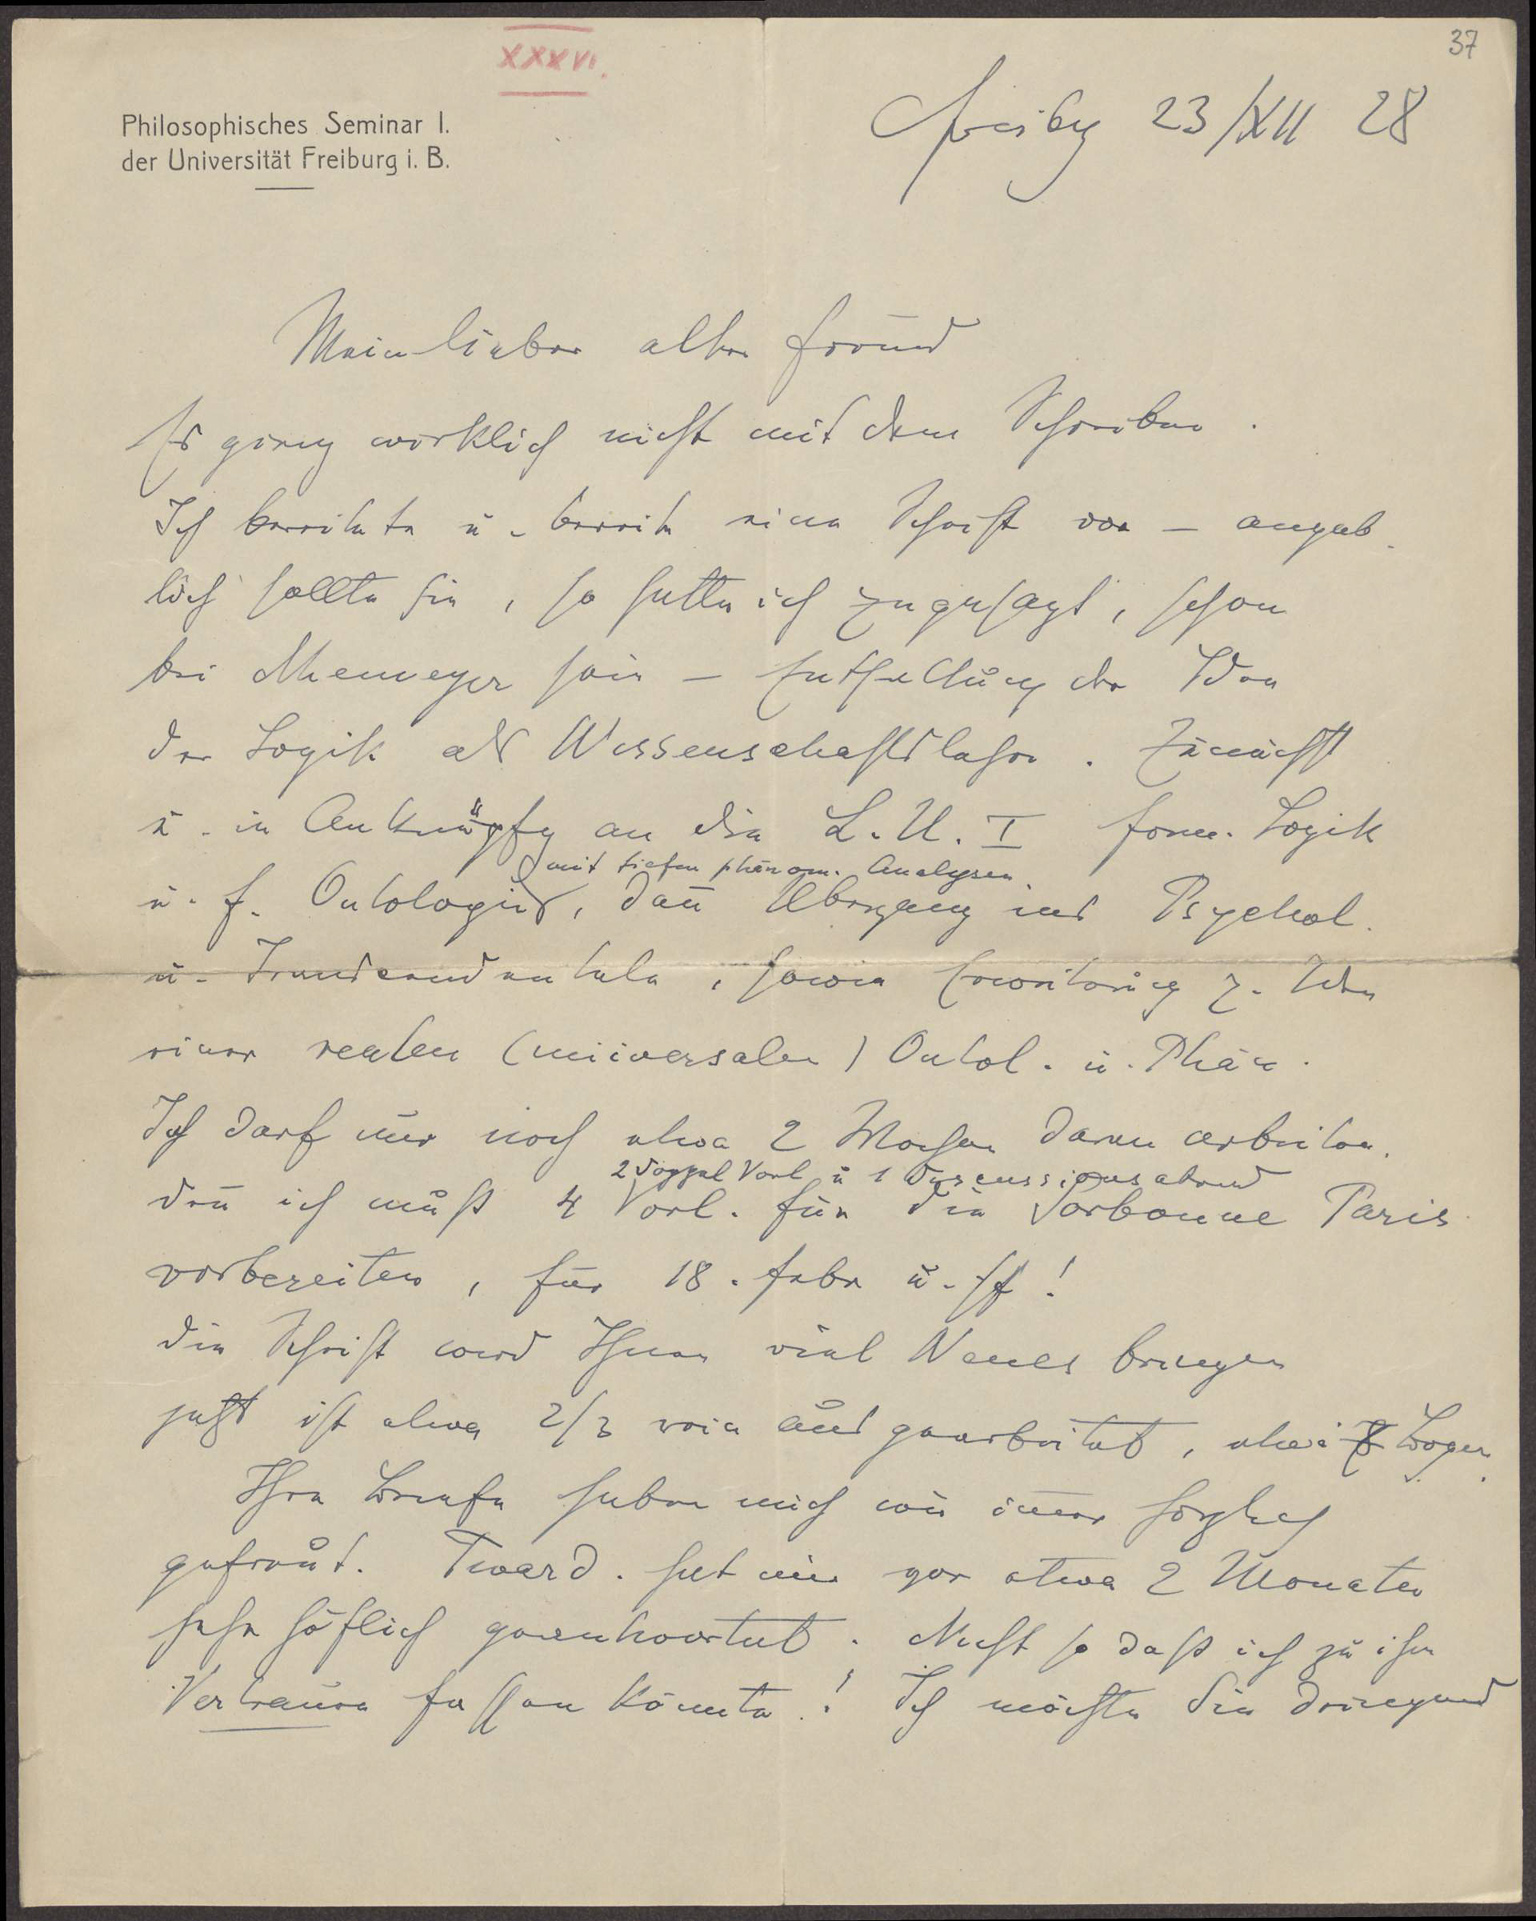 XXXVI.
37
Philosophisches Seminar I.
der Universität Freiburg i. B.
Freibg 23/XII 28
Mein lieber alter Freund
Es ging wirklich nicht mit dem Schreiben.
Ich bereitete u. bereite eine Schrift vor – angeb
lich sollte sie, so hatte ich zugesagt, schon
bei Niemeyer sein – Entfaltung der Idee
der Logik als Wissenschaftslehre. Zunächst
u. in Anknüpfg an die L. U. I form. Logik
mit tiefen phänom. Analysen.
u. f. Ontologie, dan̄ Übergang ins Psychol.
u. Transcendentale, sowie Erweiterung z. Idee
einer realen (universalen) Ontol. u. Phän.
Ich darf nur noch etwa 2 Wochen daran arbeiten.
2 Doppel Vorl u 1 Discussionsabend
den̄ ich muß 4 Vorl. für die Sorbonne Paris
vorbereiten, für 18. Febr u. ff!
Die Schrift wird Ihnen viel Neues bringen
jetzt ist etwa 2/3 rein ausgearbeitet, etwa Bogen.
Ihre Briefe haben mich wie im̄er herzlich
gefreut. Tward. hat mir vor etwa 2 Monaten
sehr höflich geantwortet. Nicht so daß ich zu ihm
Vertrauen fassen könnte! Ich möchte Sie dringend